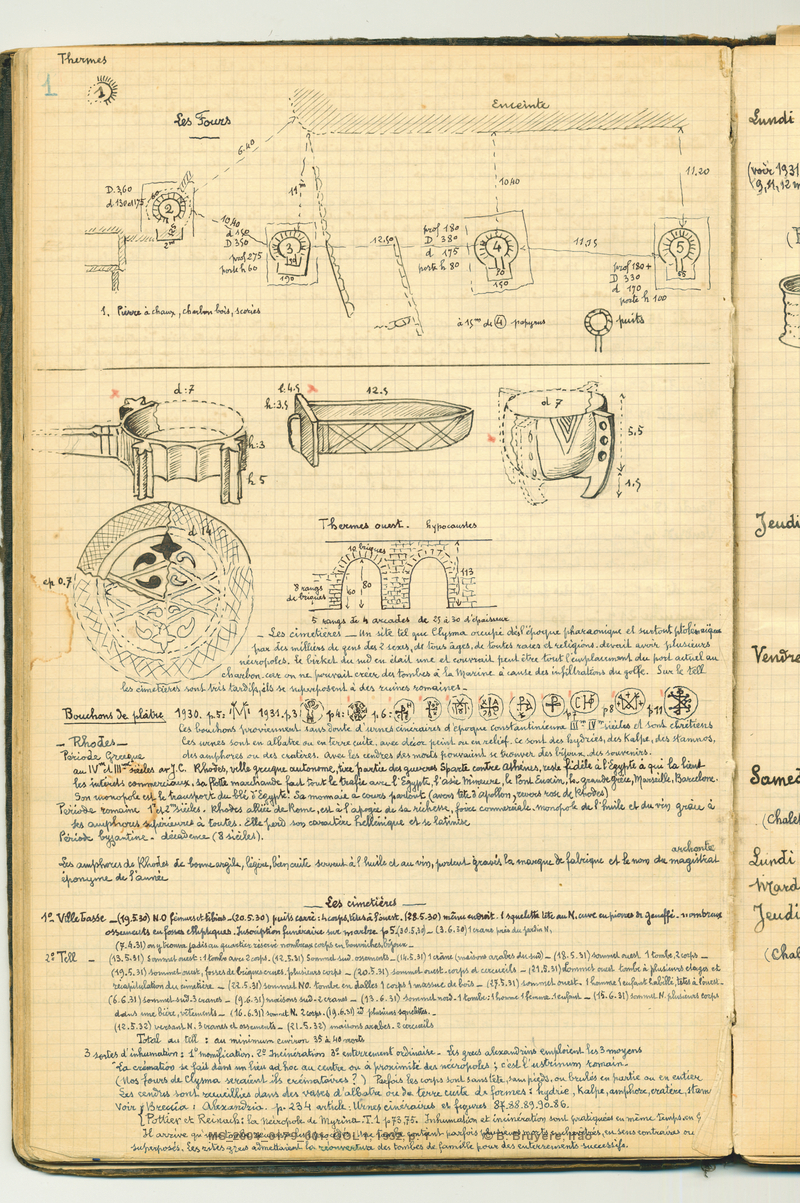 Thermes
1
1
Les Fours
Enceinte
6.40
11m
10.40
11.20
D. 3,60
d 130 à 175
2
10,40
d 150
D. 350
prof 275
poste h 60
3
190
12.50
prof 180
D 380
d 175
poste h 80
4
70
150
11,95
prof 180+
D 330
d 170
poste h 100
5
1. Pierre à chaux, charbon bois, scories
à 15m de 4 papyrus
puits
d:7
h:3
h 5
l:4.5
h:3,5
12.5
d 7
5,5
1,5
d 14
ep 0,7
Thermes ouest. hypocaustes
10 briques
8 rangs de briques
60
80
113
5 rangs de 4 arcades de 25 à 30 d'épaisseur
_ Les cimetières _ Un site tel que Clysma occupé dès l'époque pharaonique et surtout ptolémaïque
par des milliers de gens des 2 sexes, de tous âges, de toutes races et religions, devait avoir plusieurs
nécropoles. le birket du sud en était une et couvrait peut être tout l'emplacement du port actuel au
charbon. car on ne pouvait creuser des tombes à la Marine à cause des infiltrations du golfe. Sur le tell
les cimetières sont très tardifs, ils se superposent à des ruines romaines._
Bouchons de plâtre 1930. p.5: 1931. p.3 p4: p.6: p7 p8 p.11
les bouchons proviennent sans doute d'urnes cinéraires d'époque constantinienne IIIe IVe siècles et sont chrétiens
Les urnes sont en albâtre ou en terre cuite, avec décor peint ou en relief. ce sont des hydries, des Kalpe, des stamnos,
des amphores ou des cratères. Avec les cendres des morts pouvaient se trouver des bijoux, des souvenirs.
_ Rhodes _
Période Grecque
au IVe et IIIe siècles av. J.C. Rhodes, ville grecque autonome, tire partie des guerres Sparte contre Athènes, reste fidèle à l'Egypte à qui la lient
les intérêts commerciaux. sa flotte marchande fait tout le trafic avec l'Egypte, l'asie Mineure, le Pont Euxin, la grande grèce, Marseille, Barcelone.
Son monopole est le transport du blé d'Egypte. Sa monnaie a cours partout (avers tête d'apollon, revers rose de Rhodes)
Période romaine 1er 2e siècles. Rhodes alliée de Rome, est à l'apogée de sa richesse, foire commerciale. monopole de l'huile et du vin grâce à
ses amphores supérieures à toutes. Elle perd son caractère hellénique et se latinise
Période byzantine. décadence (8 siècles).
archonte
Les amphores de Rhodes de bonne argile, légère, bien cuite servent à l'huile et au vin, portent gravés la marque de fabrique et le nom du magistrat
éponyme de l'année
_ Les cimetières _
1º. Ville basse _ (19.5.30) N.O fémurs et tibias _ (20.5.30) puits carré: 4 corps, têtes à l'ouest. (28.5.30) même endroit. 1 squelette tête au N. cuve en pierres de Geneffé. nombreux
ossements en fosses elliptiques. Inscription funéraire sur marbre p5. (30.5.30) _ (3.6.30) 1 crâne près du jardin N,
(7.4.31) on y trouva jadis au quartier réservé nombreux corps en bourriches, bijoux _
2º Tell _ (13.5.31) Sommet ouest: 1 tombe avec 2 corps. (12.5.31) Sommet sud. ossements _ (14.5.31) 1 crâne (maisons arabes du sud) _ (18.5.31) sommet ouest 1 tombe, 2 corps _
(19.5.31) sommet ouest, fosses de briques crues, plusieurs corps _ (20.5.31) sommet ouest. corps et cercueils _ (21.5.31) sommet ouest tombe à plusieurs étages et
récapitulation du cimetière _ (22.5.31) sommet NO. tombe en dalles 1 corps 1 massue de bois _ (27.5.31) sommet ouest. 1 homme 1 enfant habillé, têtes à l'ouest _
(6.6.31) sommet sud. 3 crânes _ (9.6.31) maisons sud. 2 crânes _ (13.6.31) sommet nord. 1 tombe: 1 homme 1 femme. 1 enfant _ (15.6.31) sommet N. plusieurs corps
dans une bière, vêtements _ (16.6.31) sommet N. 2 corps. (19.6.31) id plusieurs squelettes. _
(12.5.32) versant N. 3 crânes et ossements _ (21.5.32) maisons arabes. 2 cercueils
Total au tell: au minimum environ 35 à 40 morts
3 sortes d'inhumation: 1º momification. 2º Incinération 3º enterrement ordinaire _ Les grecs alexandrins emploient les 3 moyens
La crémation se fait dans un lieu ad hoc au centre ou à proximité des nécropoles; c'est l'ustrinum romain.
(Nos fours de Clysma seraient ils crématoires?) Parfois les corps sont sans tête, sans pieds, ou brûlés en partie ou en entier
Les cendres sont recueillies dans des vases d'albâtre ou de terre cuite de formes: hydrie, Kalpe, amphore, cratère, stam
Voir Breccia: Alexandria. p. 234 article: Urnes cinéraires et figures 87.88.89.90.86.
Pottier et Reinach: la nécropole de Myrina. T.1 p73.75. Inhumation et incinération sont pratiquées en même temps en G
Il arrive qu'un contient parfois plusieurs morts enchevêtrés, en sens contraires ou
superposés. Les rites grecs admettaient la réouverture des tombes de famille pour des enterrements successifs.
MS_2004_0179_001 COL1 1932 p. © B. Bruyère, Ifao
Lundi
(voir 1931
9,11,12 m
Jeudi
Vendre
Samed
(Chale
Lundi
Mard
Jeudi
(Chal